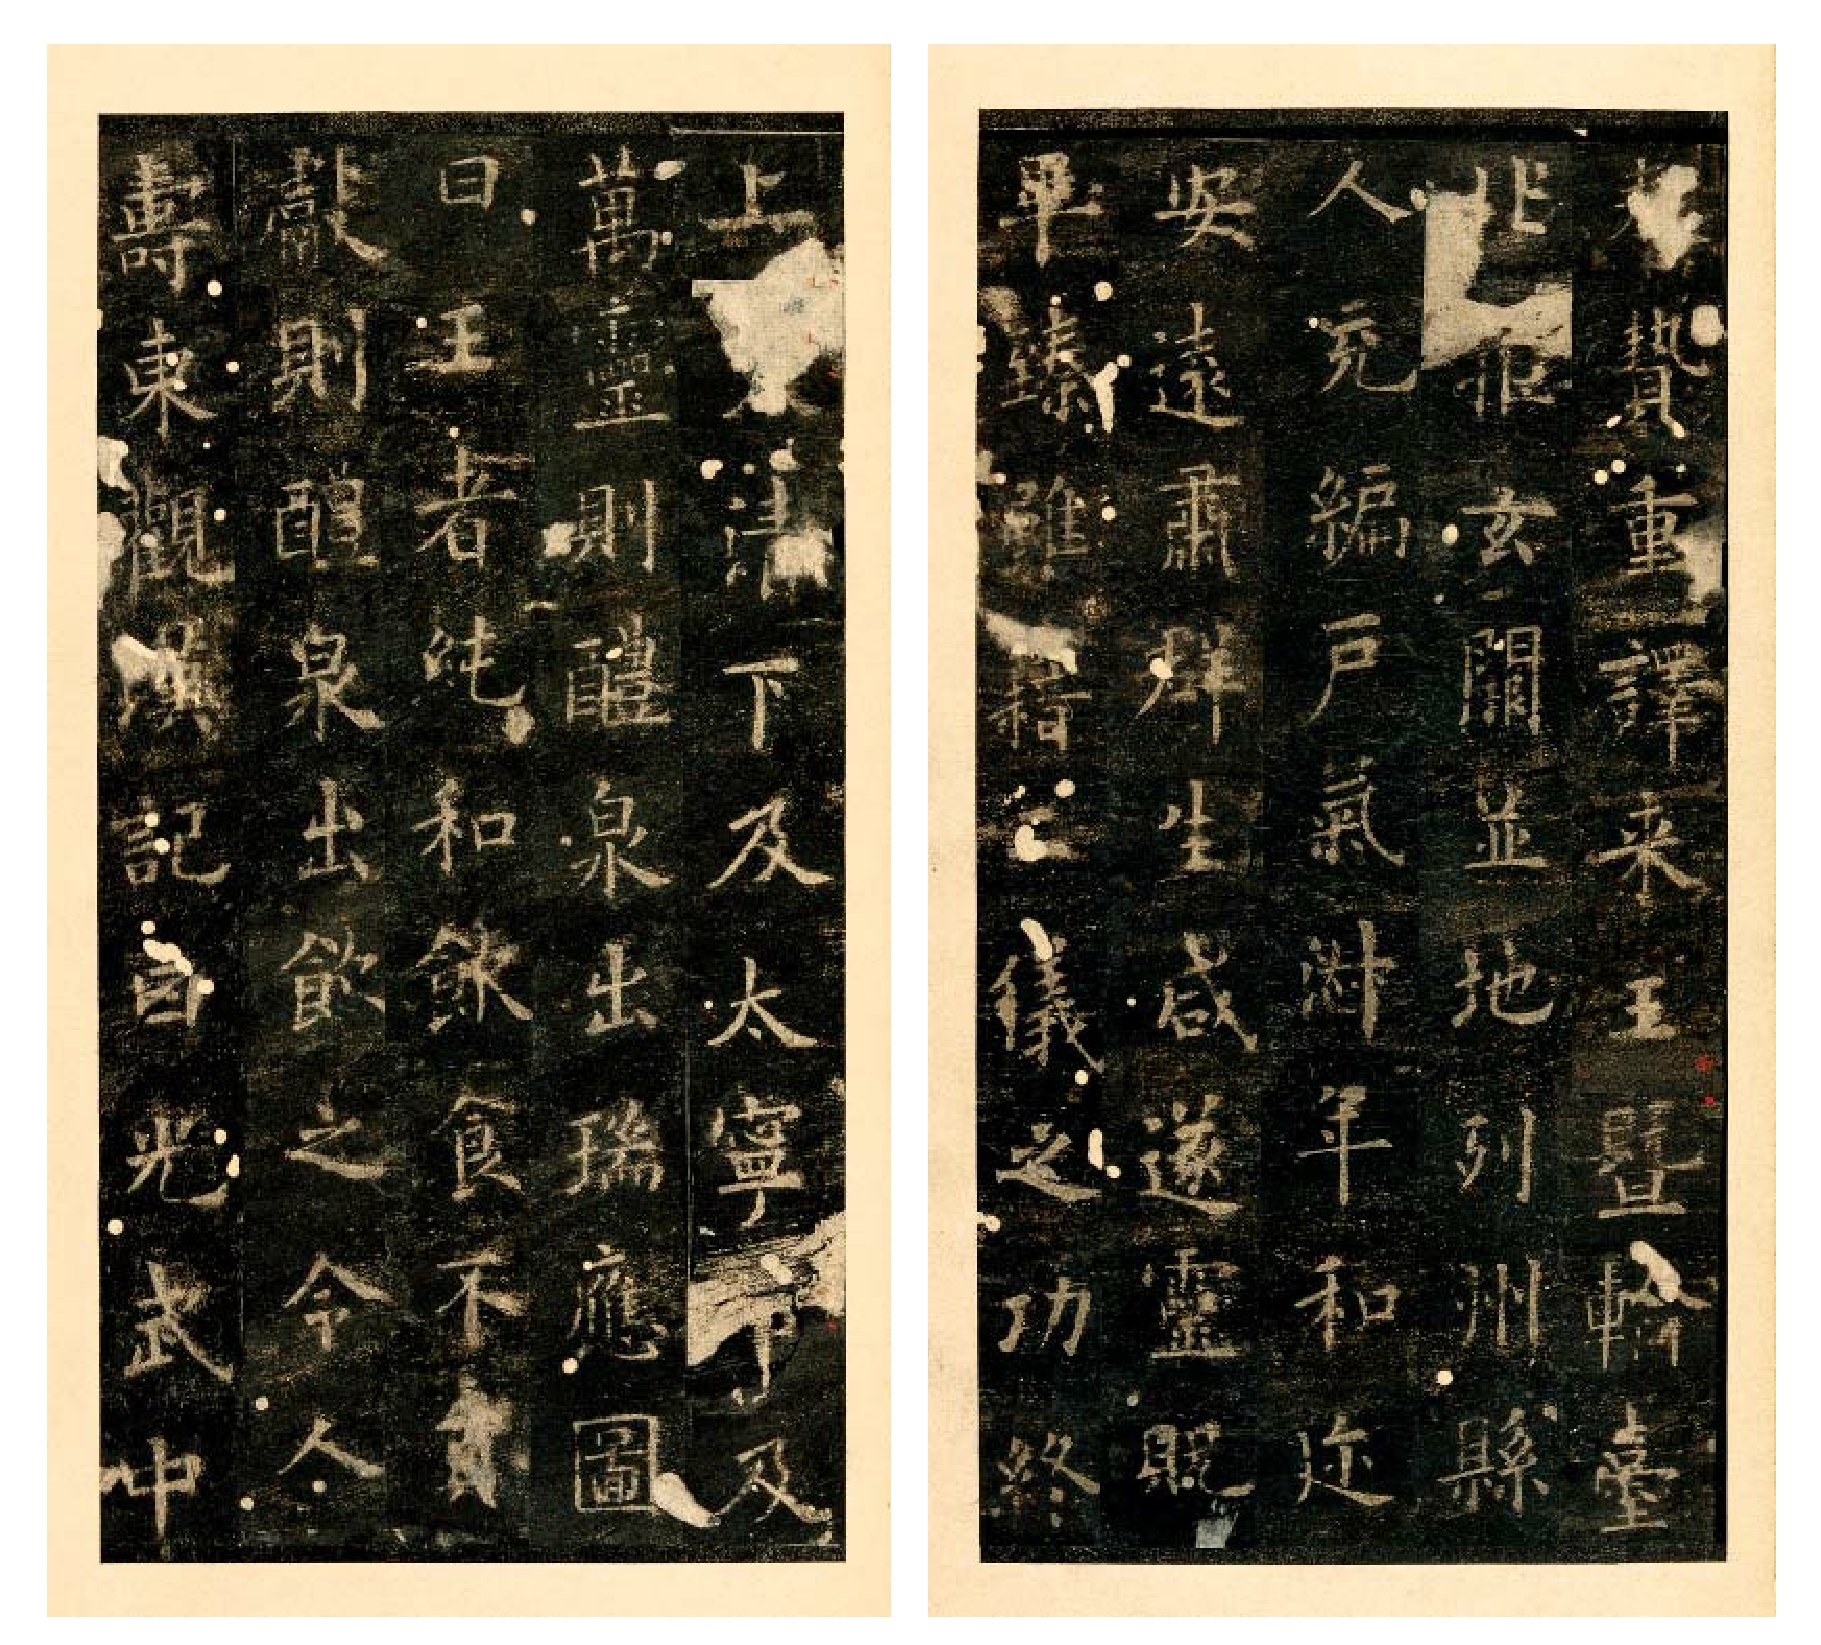 贄重譯来王暨輪臺
北拒玄闕並地列州縣
人充編戶氣淑年和迩
安遠肅群生咸遂靈貺
畢臻雖藉二儀之功終
上清下及太寧中及
萬靈則醴泉出瑞應圖
曰王者純和飲食不貢
獻則醴泉出飲之令人
壽東觀漢記曰光武中